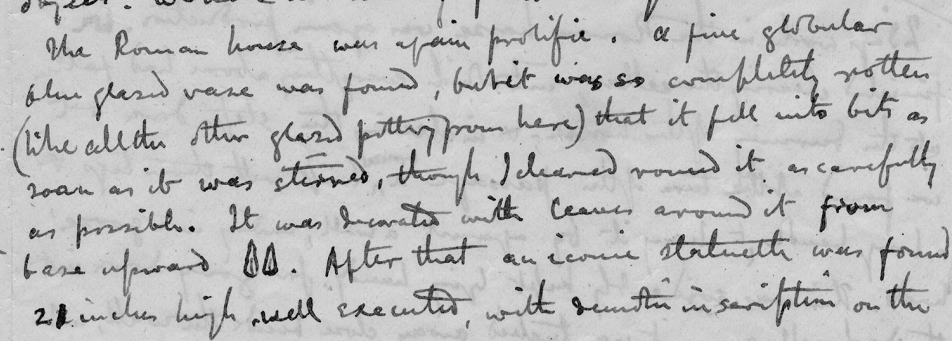 The Roman house was again prolific. A fine globular
blue glazed vase was found, but it was so completely rotten
(like all the other glazed pottery from here) that it fell into bits as
soon as it was stirred, though I cleared round it as carefully
as possible. It was decorated with leaves around it from
base upward. After that an iconic statuette was found
21 inches high, well executed, with demotic inscription on the